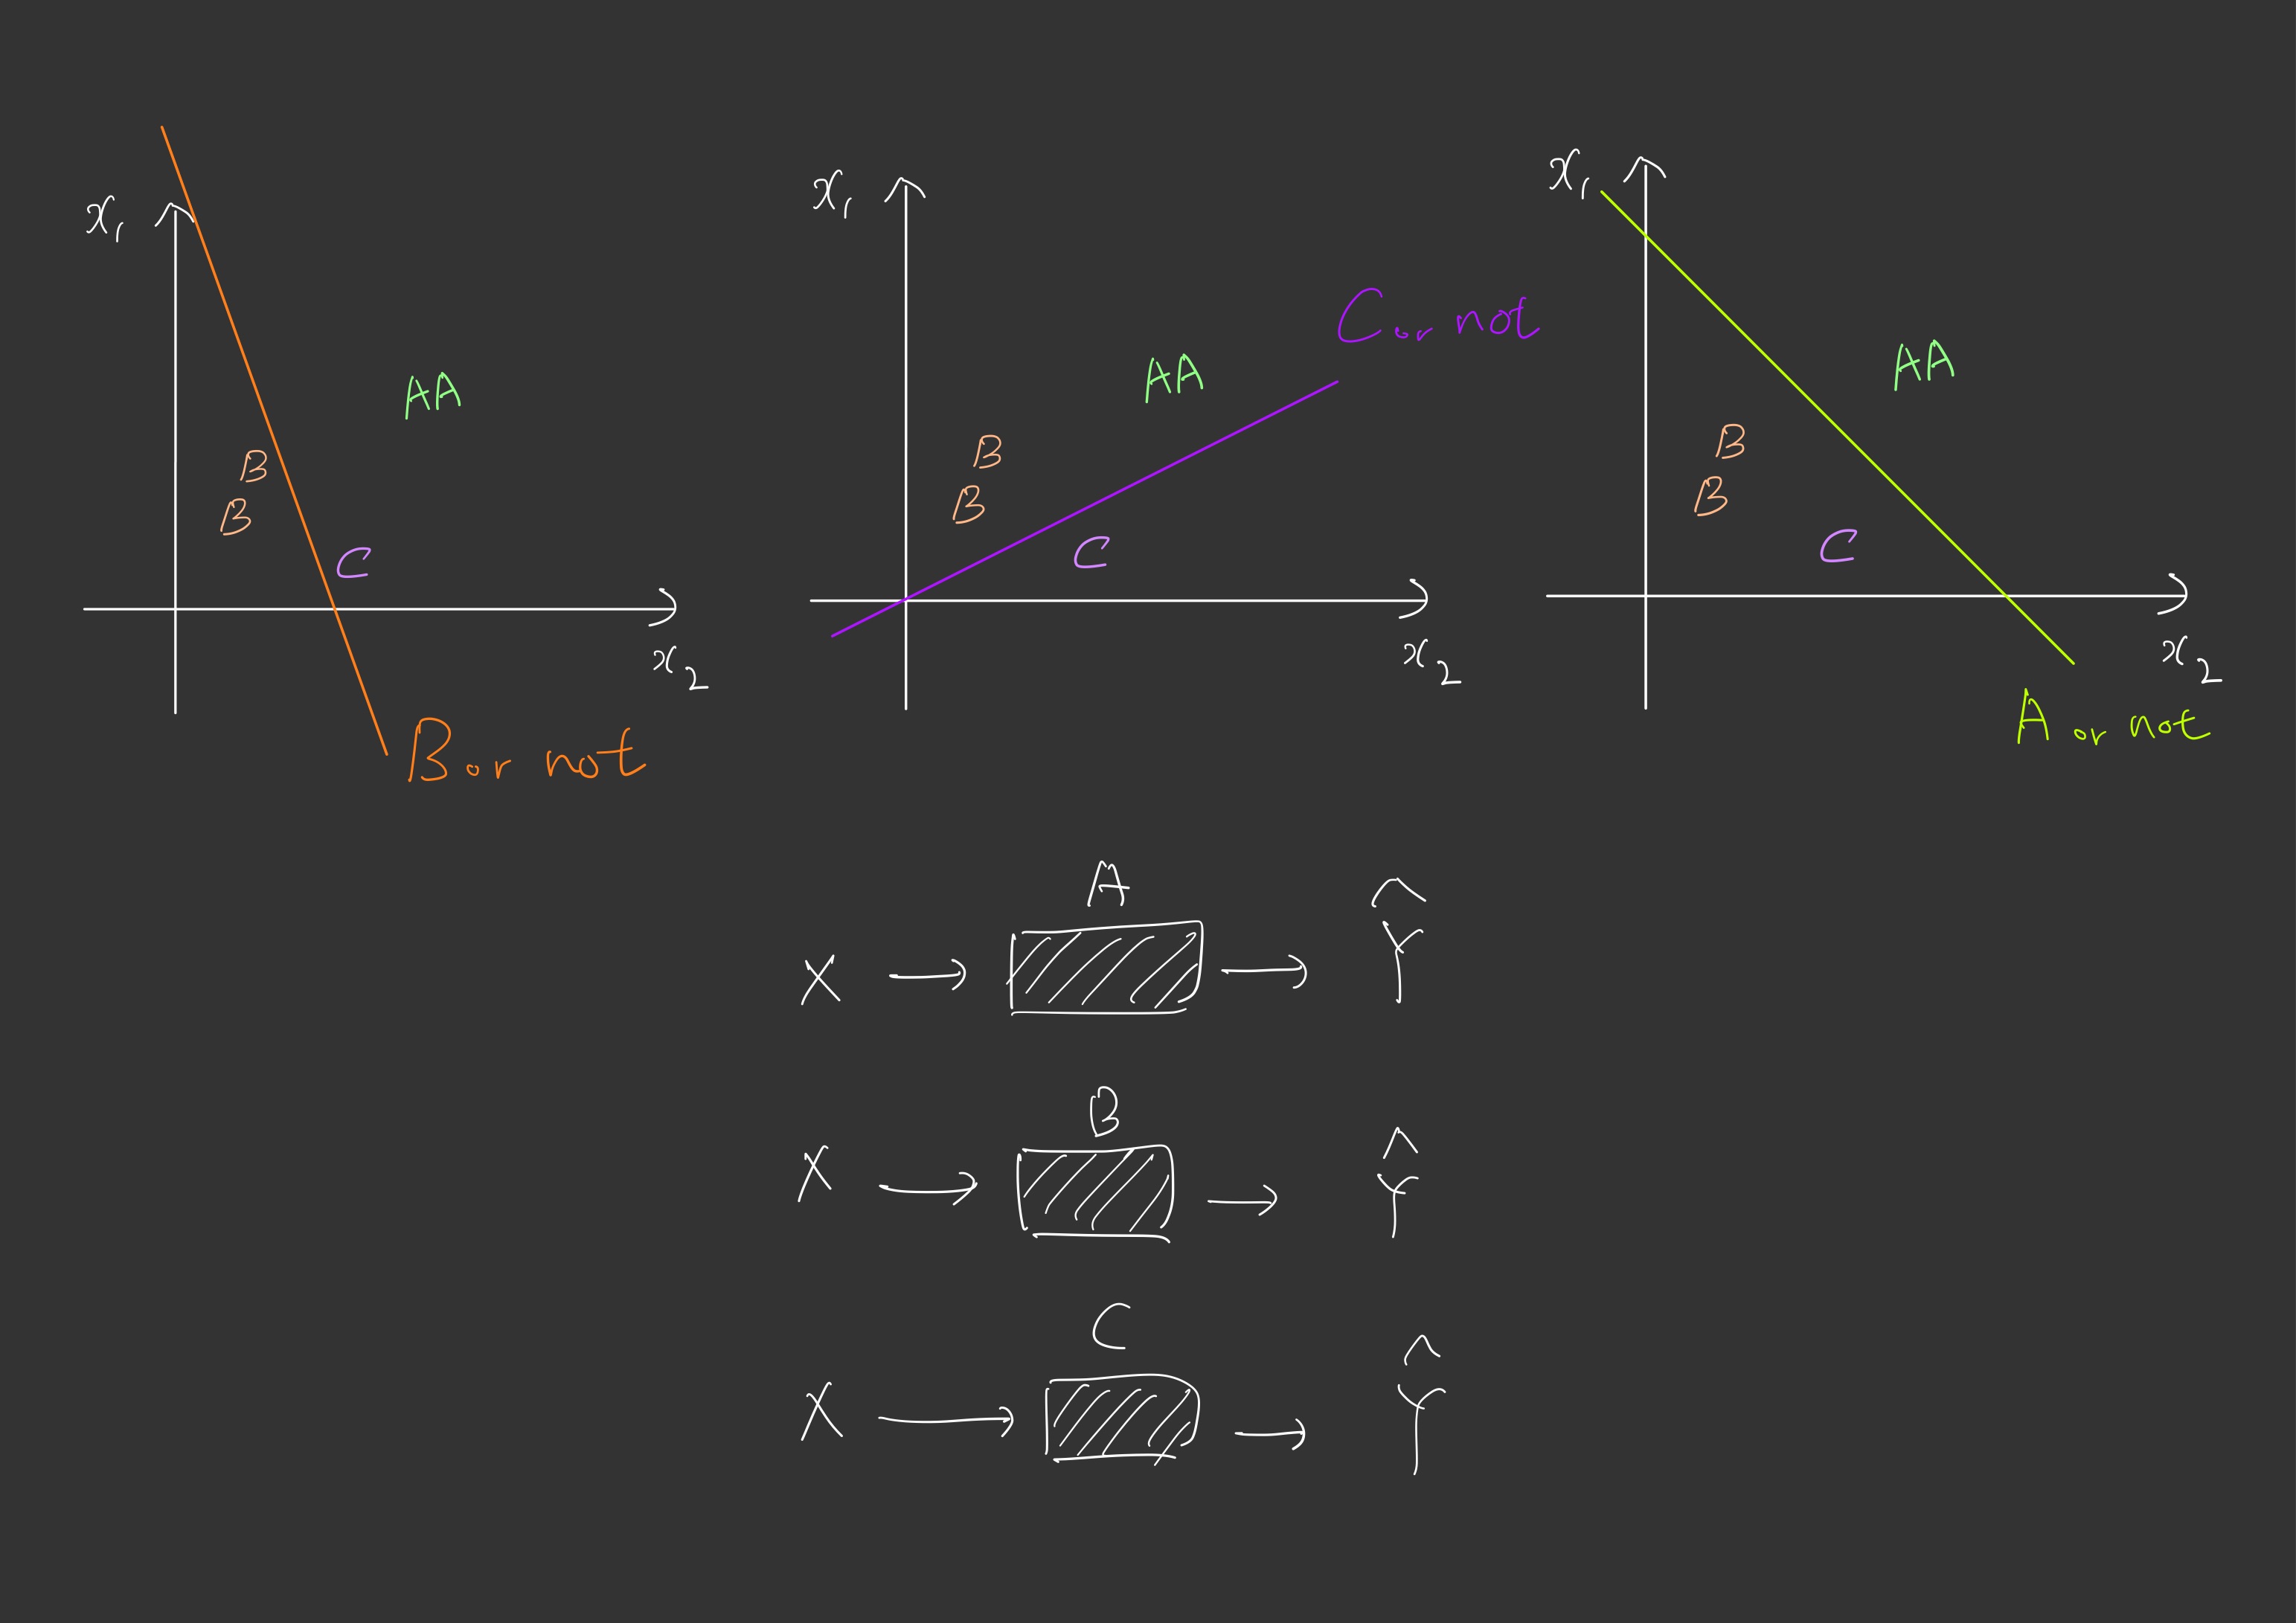 x₁
AA
B
B
C
x₂
B or not
x₁
C or not
AA
B
B
C
x₂
x₁
AA
B
B
C
x₂
A or not
A
X → → Ŷ
B
X → → Ŷ
C
X → → Ŷ